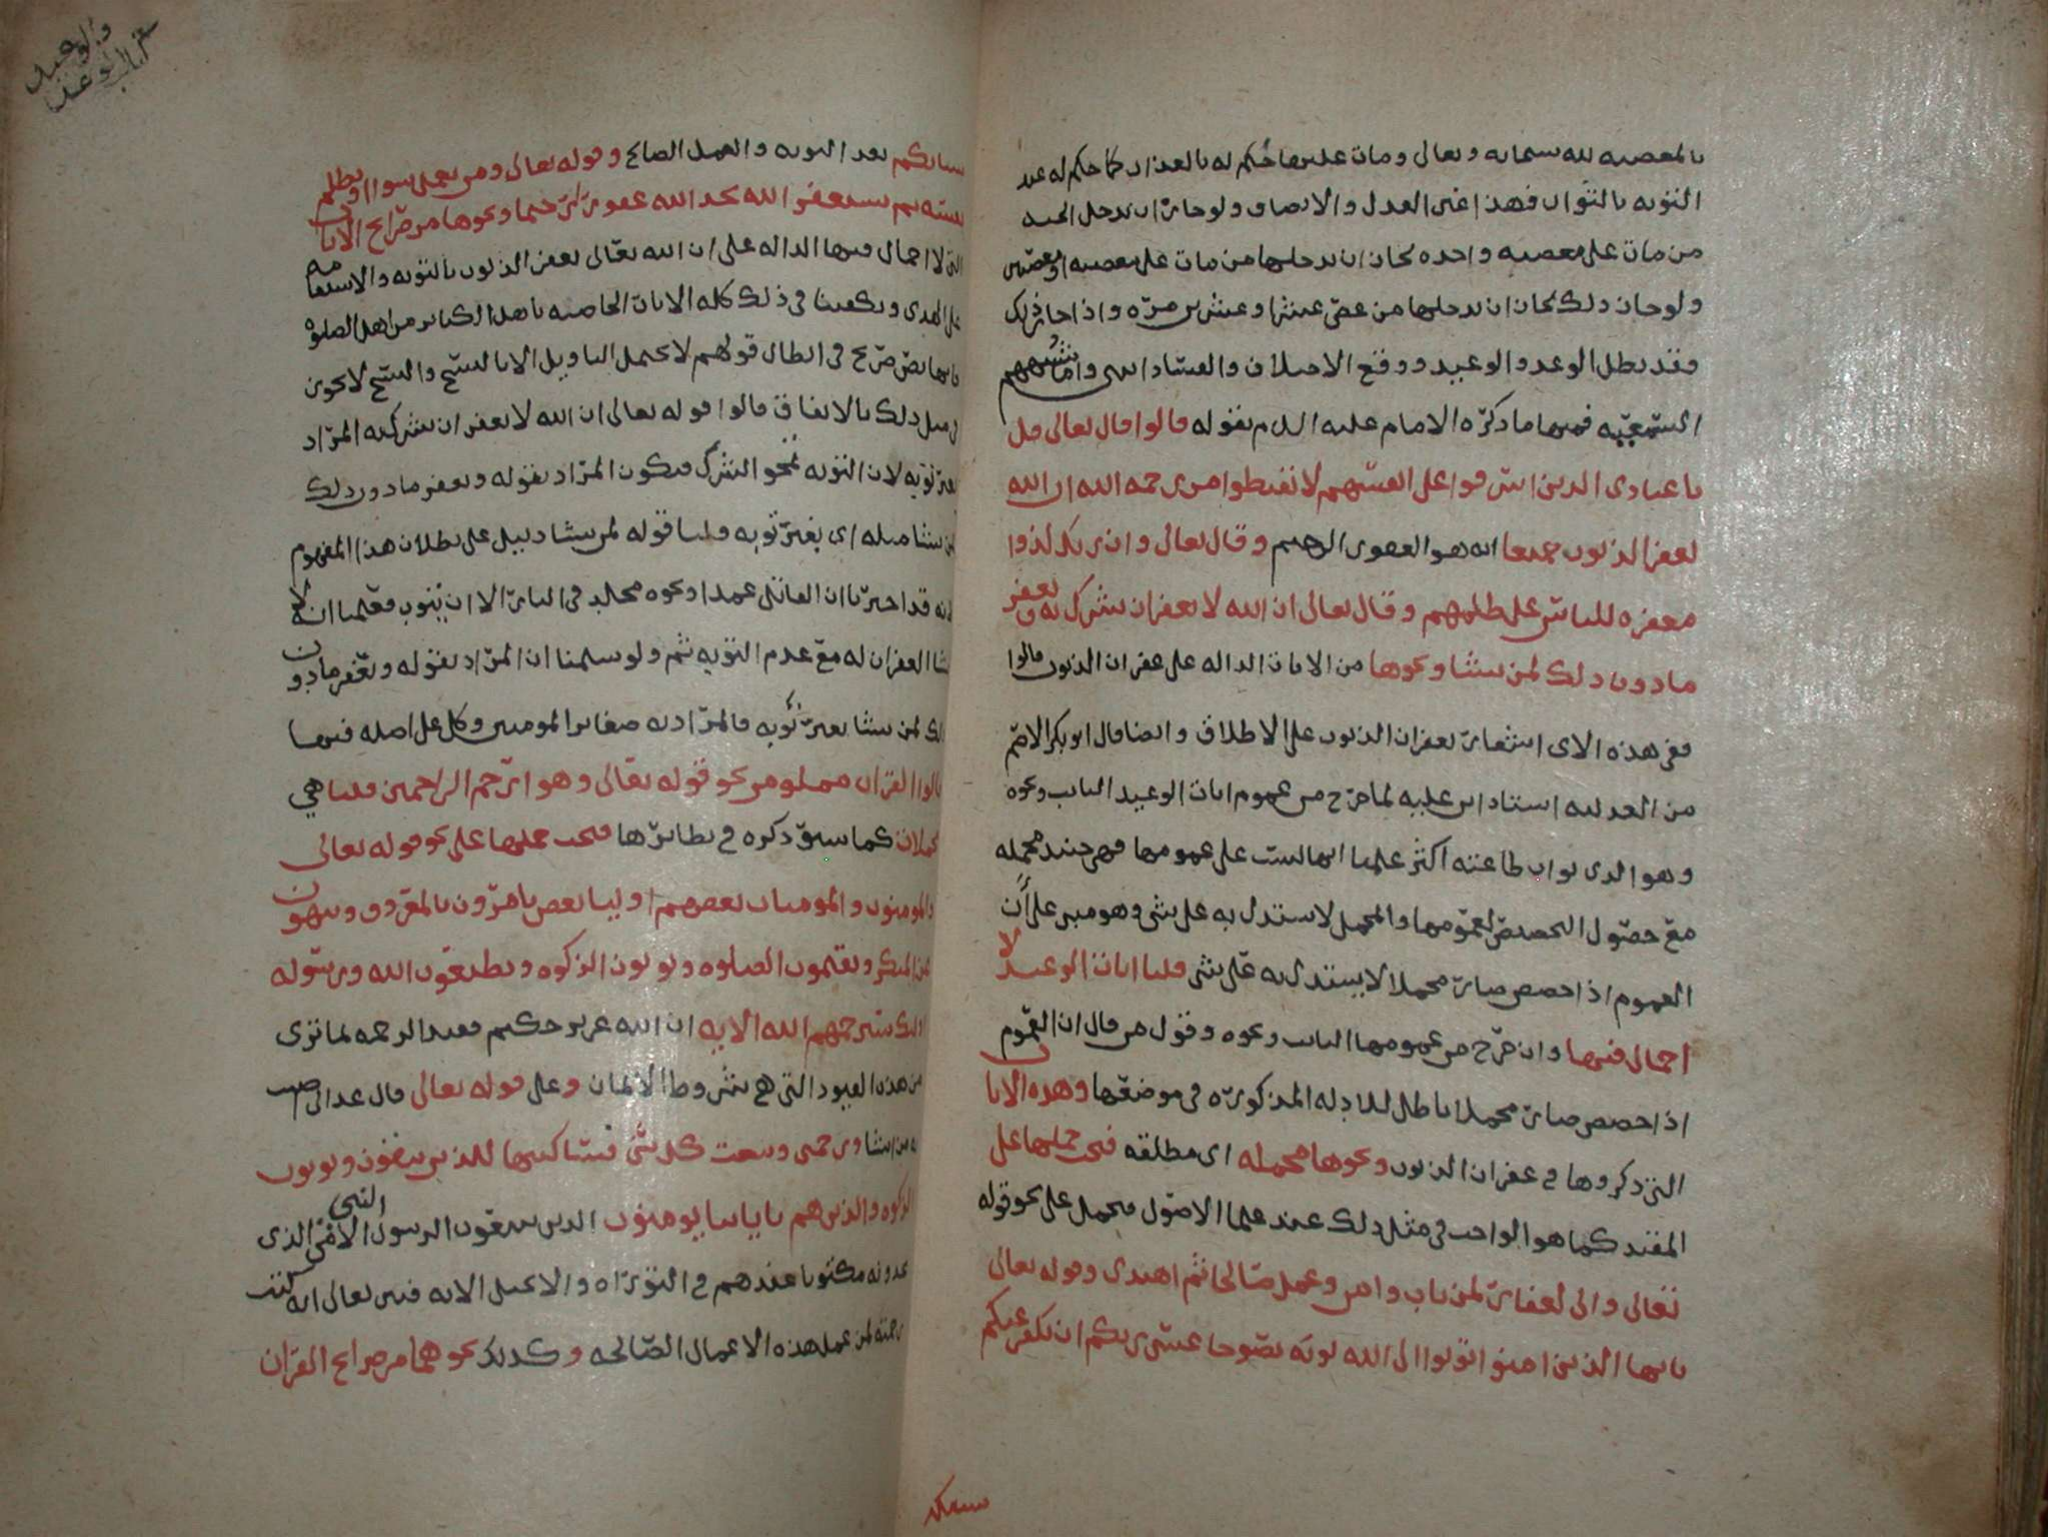 بالمعصيه لله سبحانه وتعالى ومات عليها حُكم له بالعذاب كما حكم له عند
التوبه بالثواب فهذا عين العدل والانصاف ولو جاز ان يدخل الجنه
من مات على معصيه واحده لجاز ان يدخلها من مات على معصيه او معصيتين
ولو جاز ذلك لجاز ان يدخلها من عصى عشرا وعشرين مره واذا جاز ذلك
فقد بطل الوعد والوعيد ووقع الاختلاف والفساد انتهى واما شبههم
السمعيه فمنها ما ذكره الامام عليه السلم بقوله قالوا قال تعالى قل
يا عبادي الذين اسرفوا على انفسهم لا تقنطوا من رحمه الله ان الله
يغفر الذنوب جميعا انه هو الغفور الرحيم وقال تعالى وان ربك لذوا
مغفره للناس على ظلمهم وقال تعالى ان الله لا يغفر ان يشرك به ويغفر
ما دون ذلك لمن يشا ونحوها من الايات الداله على غفران الذنوب قالوا
ففي هذه الاي اشعار بغفران الذنوب على الاطلاق وايضا قال ابو بكر الاصم
من العدليه استاد ابن عليه لما خرج من عموم ايات الوعيد التايب ونحوه
وهو الذي ثواب طاعته اكثر علمنا انها ليست على عمومها فهي حينئذ مجمله
مع حصول التخصيص لعمومها والمجمل لا يستدل به على شي وهو مبني على ان
العموم اذا خصص صار مجملا لا يستدل به على شي قلنا ايات الوعيد لا
اجمال فيها وان خرج من عمومها التايب ونحوه وقول من قال ان العموم
اذا خصص صار مجملا باطل للادله المذكوره في موضعها وهذه الايات
التي ذكروها في غفران الذنوب ونحوها مجمله اي مطلقه فيجب حملها على
المقيد كما هو الواجب في مثل ذلك عند علما الاصول فيحمل على نحو قوله
تعالى واني لغفار لمن تاب وامن وعمل صالحا ثم اهتدى وقوله تعالى
يا ايها الذين امنوا توبوا الى الله توبه نصوحا عسى ربكم ان يكفر عنكم
سياتكم
والوعيد
سياتكم بعد التوبه والعمل الصالح وقوله تعالى ومن يعمل سوا او يظلم
نفسه ثم يستغفر الله يجد الله غفورا رحيما ونحوها من صرايح الايات
التي لا اجمال فيها الداله على ان الله تعالى يغفر الذنوب بالتوبه والاستقامه
على الهدى ويكفينا في ذلك كله الايات الخاصه باهل الكباير من اهل الصلوه
فانها نص صريح في ابطال قولهم لا يحتمل التاويل الا بالنسخ والنسخ لا يجوز
في مثل ذلك بالاتفاق قالوا قوله تعالى ان الله لا يغفر ان يشرك به المراد
بغير توبه لان التوبه تمحو الشرك فيكون المراد بقوله ويغفر ما دون ذلك
لمن يشا مثله اي بغير توبه قلنا قوله لمن يشا دليل على بطلان هذا المفهوم
لانه قد اخبرنا ان القاتل عمدا ونحوه مخلد في النار الا ان يتوب فعلمنا انه لا
يشا الغفران له مع عدم التوبه ثم ولو سلمنا ان المراد بقوله ويغفر ما دون
ذلك لمن يشا بغير توبه فالمراد به صغاير المومنين وكل على اصله فيها
قالوا القران مملو من نحو قوله تعالى وهو ارحم الراحمين قلنا هي
مجملات كما سبق ذكره في نظايرها فيجب حملها على نحو قوله تعالى
والمومنون والمومنات بعضهم اوليا بعض يامرون بالمعروف وينهون
عن المنكر ويقيمون الصلوه ويوتون الزكوه ويطيعون الله ورسوله
اولئك سيرحمهم الله الايه ان الله عزيز حكيم فقيد الرحمه لما ترى
من هذه القيود التي هي شروط الايمان وعلى قوله تعالى قال عذابي اصيب
به من اشا ورحمتي وسعت كل شي فساكتبها للذين يتقون ويوتون
الزكوه والذين هم باياتنا يومنون الذين يتبعون الرسول النبي الامي الذي
يجدونه مكتوبا عندهم في التوراه والانجيل الايه فبين تعالى انه كتب
رحمته لمن عمل هذه الاعمال الصالحه وكذلك نحوهما من صرايح القران